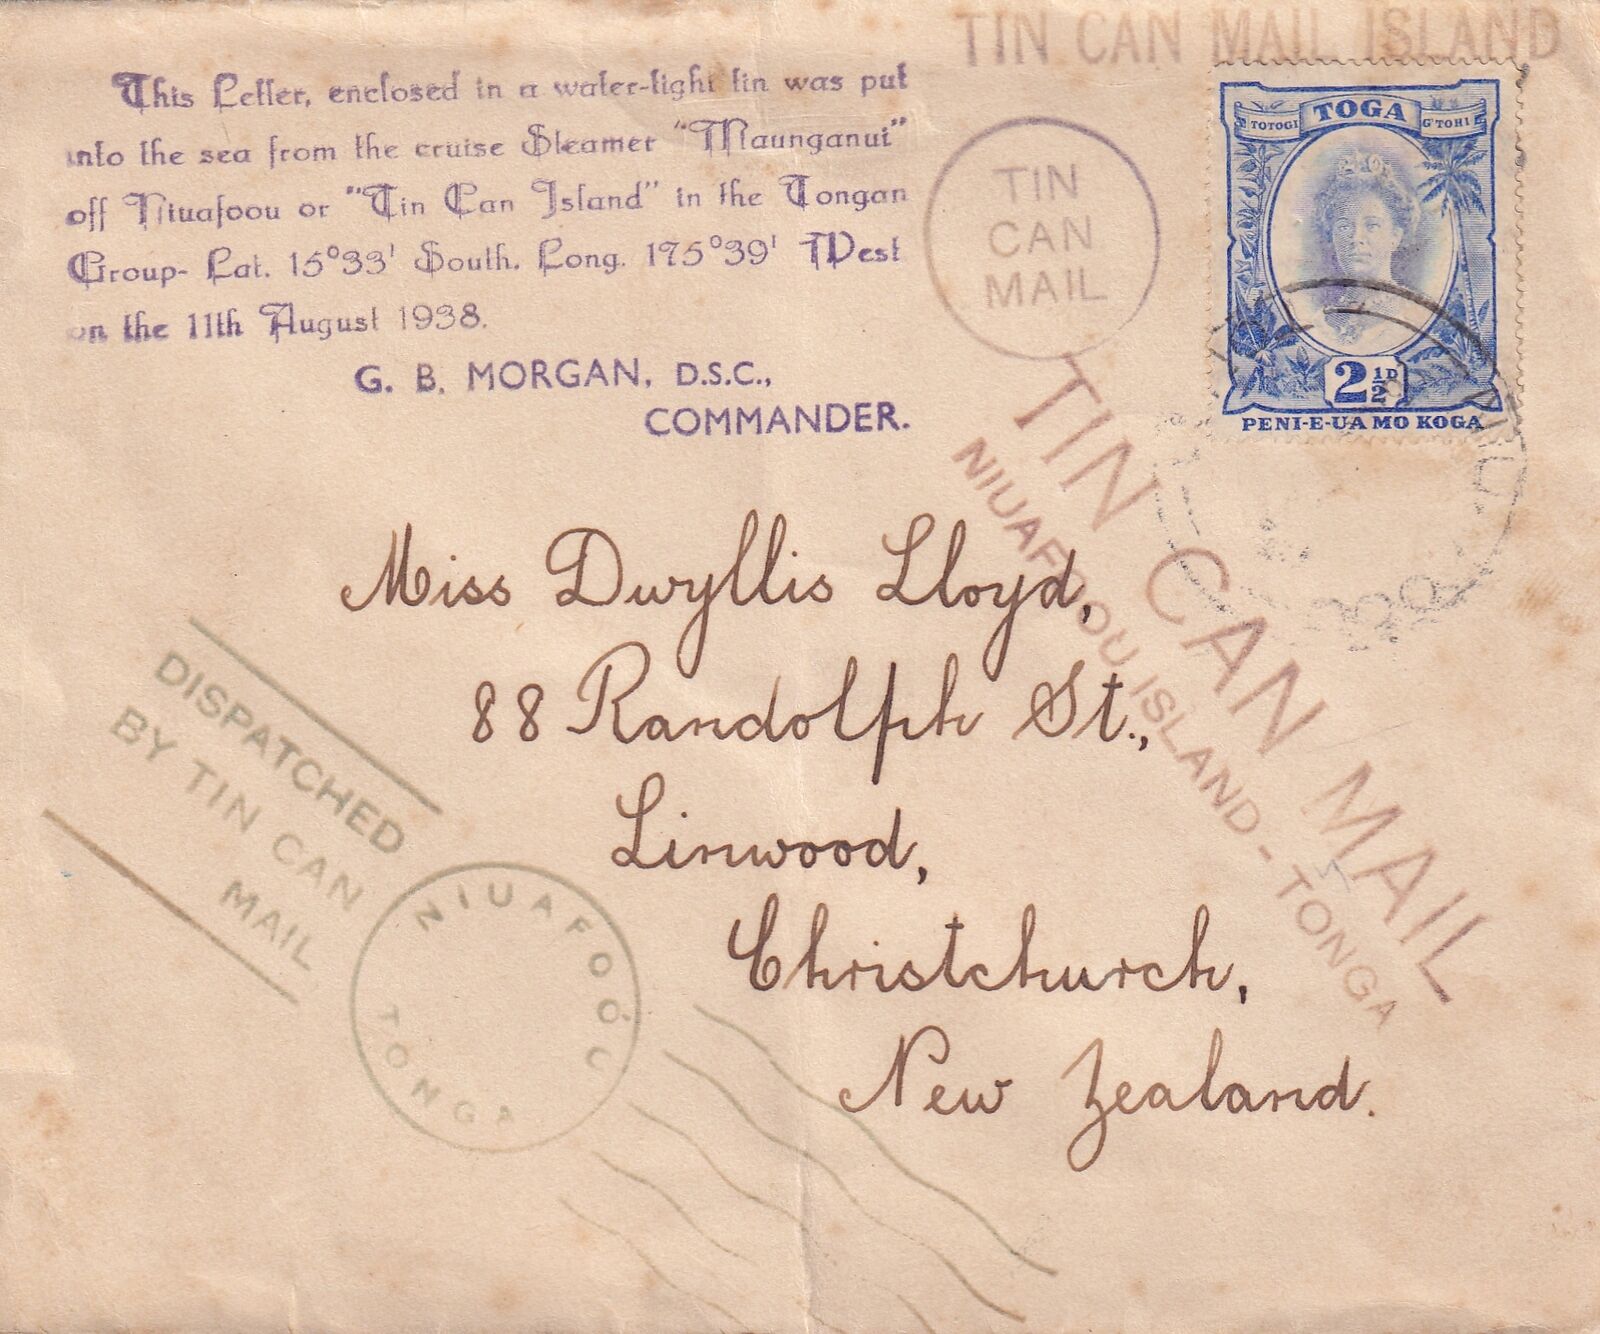 TIN CAN MAIL ISLAND
This Letter, enclosed in a water-tight tin was put
into the sea from the cruise Steamer "Maunganui"
off Niuafoou or "Tin Can Island" in the Tongan
Group- Lat. 15°33' South. Long. 175°39' West
on the 11th August 1938.
G. B. MORGAN, D.S.C.,
COMMANDER.
TIN
CAN
MAIL
TOGA
TOTOGI
G'TOHI
2½D
PENI-E-UA MO KOGA
TIN CAN MAIL
NIUAFOOU ISLAND - TONGA
Miss Dwyllis Lloyd,
88 Randolph St.,
Linwood,
Christchurch,
New Zealand.
DISPATCHED
BY TIN CAN
MAIL
NIUAFOOU
TONGA